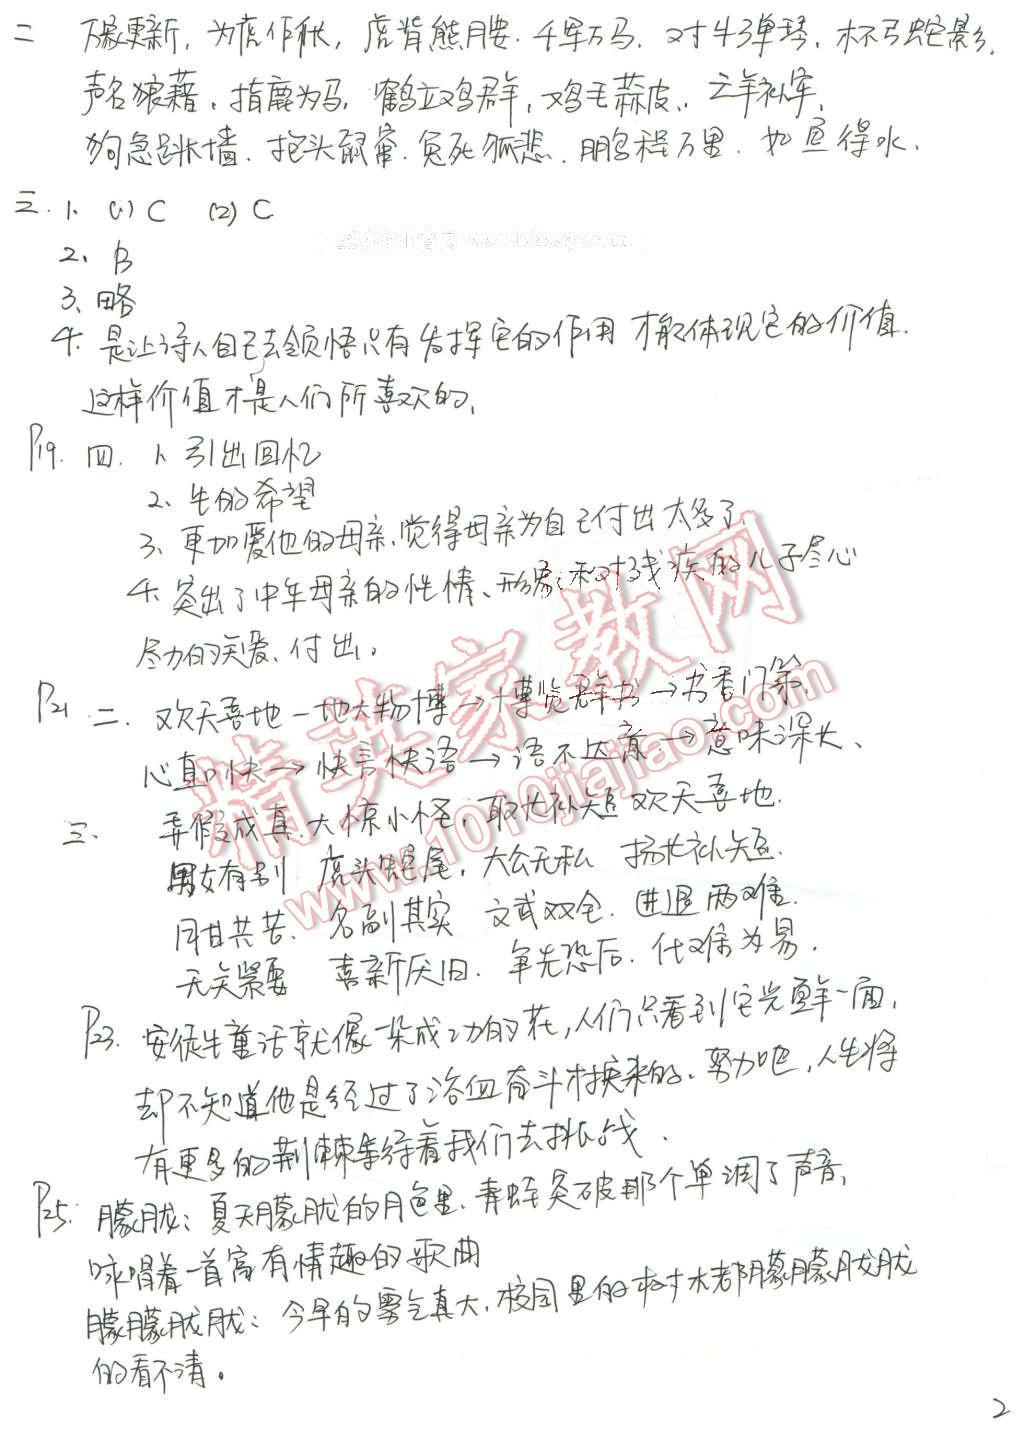 二 万象更新，为虎作伥，虎背熊腰．千军万马．对牛弹琴．杯弓蛇影，
声名狼藉．指鹿为马，鹤立鸡群，鸡毛蒜皮．亡羊补牢，
狗急跳墙．抱头鼠窜．兔死狐悲．鹏程万里．如鱼得水．
三．1、(1) C (2) C
2、B
3、略
4、是让诗人自己去领悟只有发挥它的作用 才能体现它的价值．
这样价值才是人们所喜欢的．
P19．四．1、引出回忆
2、生的希望
3、更加爱他的母亲．觉得母亲为自己付出太多了．
4、突出了中年母亲的性情、形象和对残疾的儿子尽心
尽力的关爱、付出．
P21 二．欢天喜地—地大物博→博览群书→书香门第．
心直口快→快言快语→语不达意→意味深长、
三、弄假成真．大惊小怪．取长补短 欢天喜地．
男女有别 虎头蛇尾．大公无私 扬长补短．
同甘共苦．名副其实 文武双全．进退两难．
无关紧要 喜新厌旧．争先恐后．代难为易．
P23．安徒生童话就像一朵成功的花，人们只看到它光鲜一面，
却不知道他是经过了浴血奋斗才换来的．努力吧，人生将
有更多的荆棘等待着我们去挑战．
P25．朦胧：夏天朦胧的月色里．青蛙突破那个单调了声音，
咏唱着一首富有情趣的歌曲
朦朦胧胧：今早的雾气真大．校园里的树木都朦朦胧胧
的看不清。
精英家教网
www.1010jiajiao.com
2